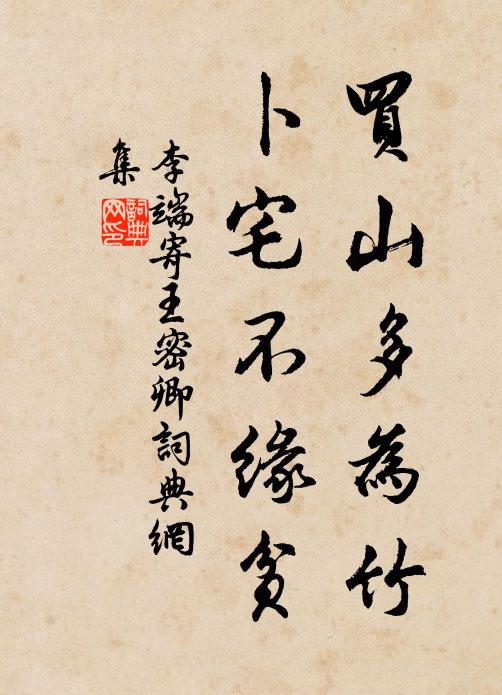 買山多為竹
卜宅不緣貧
李端寄王密卿詞典網
集
詞典
網印